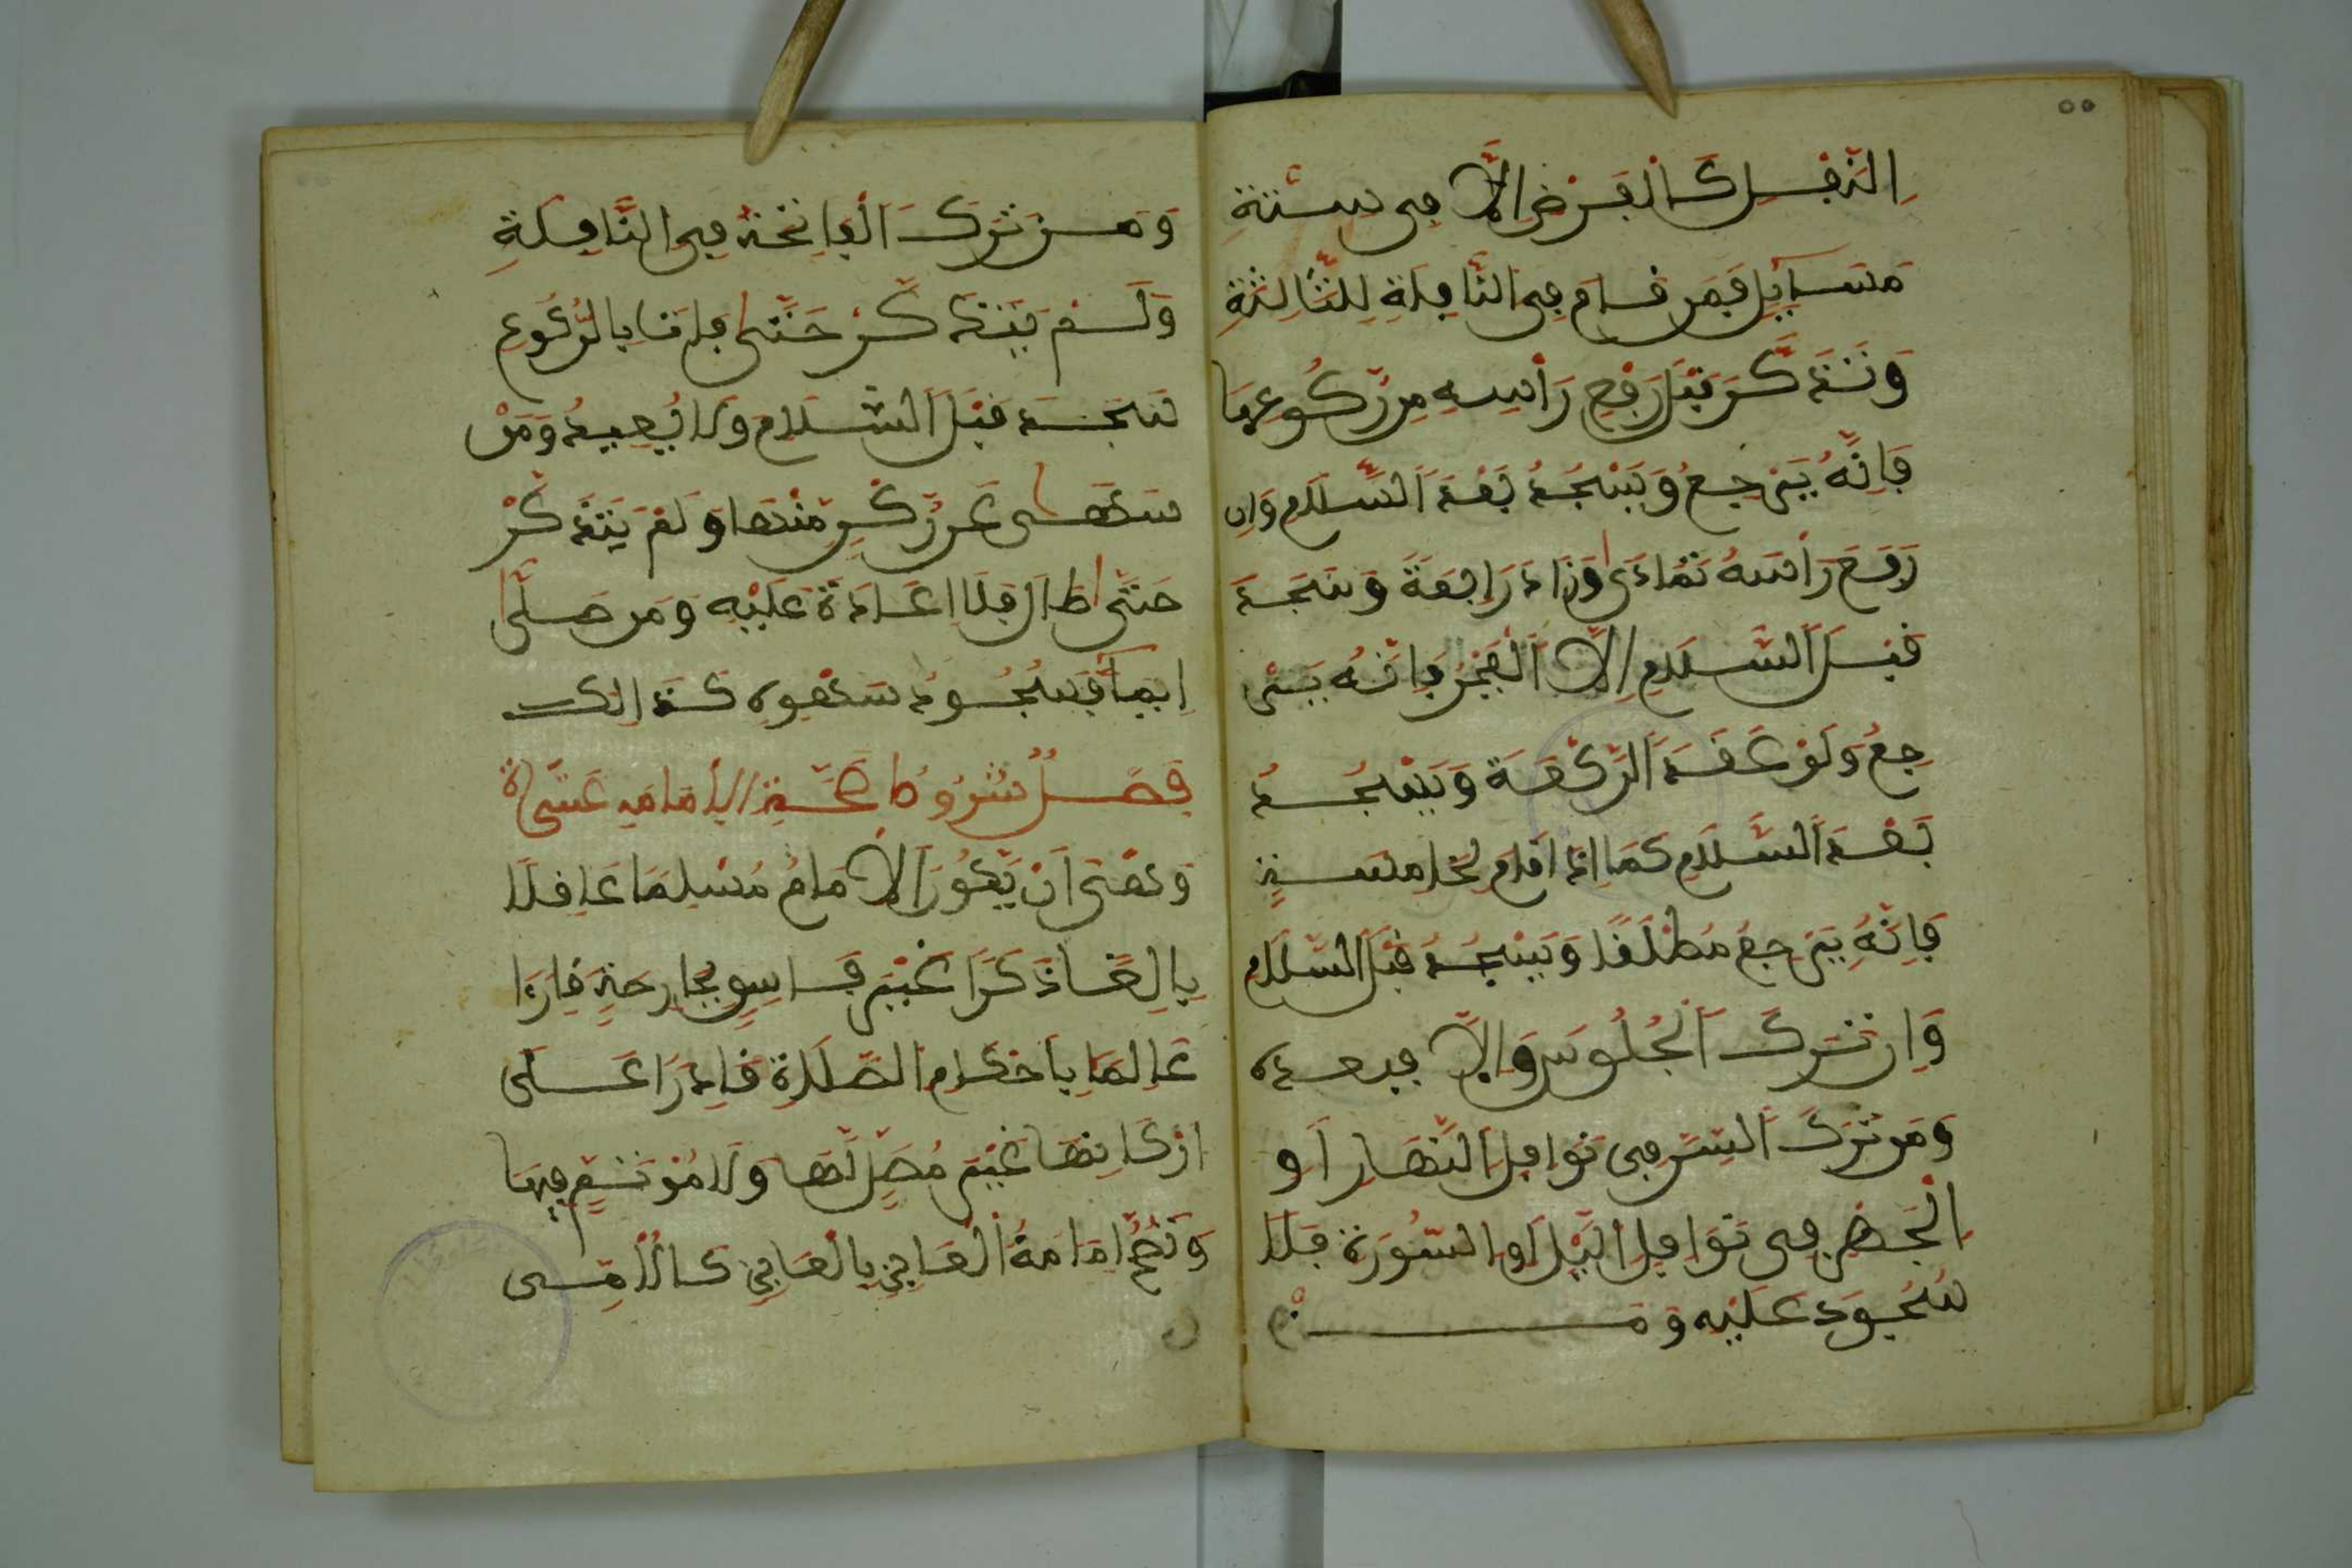 النَّفْلِ كَالْفَرْضِ إِلَّا فِي سِتَّةِ
مَسَايِلَ فَمَن قَامَ فِي النَّافِلَةِ لِلثَّالِثَةِ
وَتَذَكَّرَ قَبْلَ رَفْعِ رَأْسِهِ مِن رُّكُوعِهَا
فَإِنَّهُ يَرْجِعُ وَيَسْجُدُ بَعْدَ السَّلَامِ وَإِن
رَفَعَ رَأْسَهُ تَمَادَى وَزَادَ رَابِعَةً وَسَجَدَ
قَبْلَ السَّلَامِ إِلَّا الْفَجْرَ فَإِنَّهُ يَرْ
جِعُ وَلَوْ عَقَدَ الرَّكْعَةَ وَيَسْجُدُ
بَعْدَ السَّلَامِ كَمَا إِذَا قَامَ لِخَامِسَةٍ
فَإِنَّهُ يَرْجِعُ مُطْلَقًا وَيَسْجُدُ قَبْلَ السَّلَامِ
وَإِن تَرَكَ الْجُلُوسَ وَإِلَّا فبعده
وَمَن تَرَكَ السِّرَّ فِي نَوَافِلِ النَّهَارِ أَوِ
الْجَهْرَ فِي نَوَافِلِ الَّيْلِ أَوِ السُّورَةَ فَلَا
سُجُودَ عَلَيْهِ وَمَــــنْ
وَمَن تَرَكَ الْفَاتِحَةَ فِي النَّافِلَةِ
وَلَمْ يَتَذَكَّرْ حَتَّى قَامَ بِالرُّكُوعِ
سَجَدَ قَبْلَ السَّلَامِ وَلَا يُعِيدُ وَمَنْ
سَهَى عَن رُّكْنٍ مِّنْهَا وَلَمْ يَتَذَكَّرْ
حَتَّى طَالَ فَلَا إِعَادَةَ عَلَيْهِ وَمَن صَلَّى
إِيمَاءً فَسُجُودُ سَهْوِهِ كَذَالِكَ
فَصْلٌ شُرُوطُ صِحَّةِ الْإِمَامَةِ عَشَرَةٌ
وَهِيَ أَنْ يَّكُونَ الْإِمَامُ مُسْلِمًا عَاقِلًا
بَالِغًا ذَكَرًا غَيْرَ فَاسِقٍ بِجَارِحَةٍ قَارِءًا
عَالِمًا بِأَحْكَامِ الصَّلَاةِ قَادِرًا عَلَى
أَرْكَانِهَا غَيْرَ مُصَلٍّ لَهَا وَلَا مُؤْتَمٍّ فِيهَا
وَتَصِحُّ إِمَامَةُ الْعَاجِزِ بِالْعَاجِزِ كَالْأُمِّي